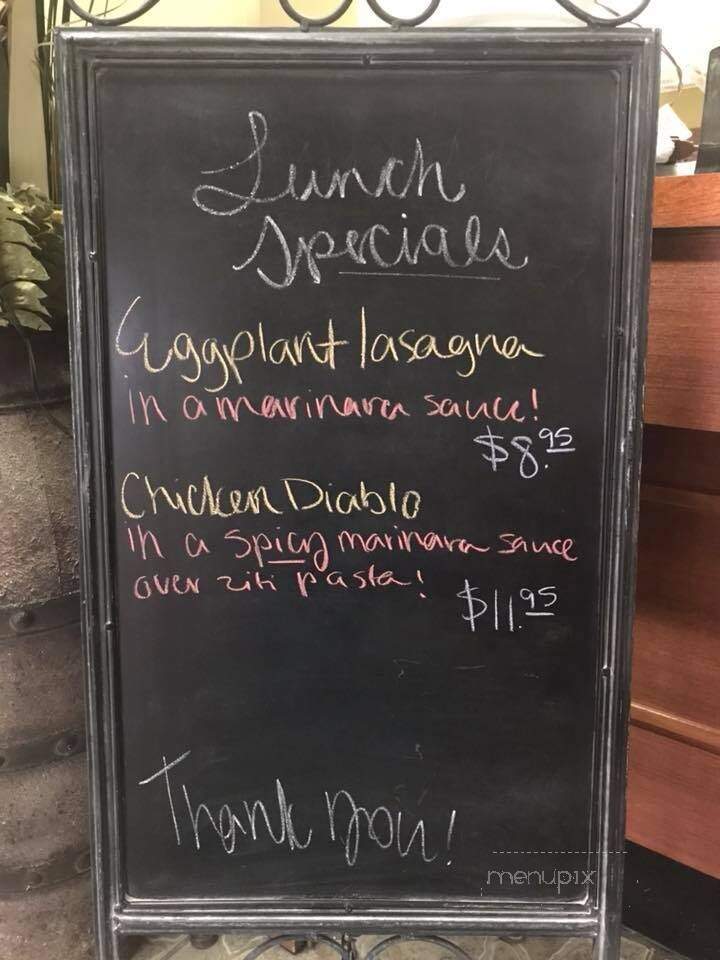 Lunch
Specials
Eggplant lasagna
in a marinara sauce!
$8.95
Chicken Diablo
in a spicy marinara sauce
over ziti pasta!
$11.95
Thank you!
menupix